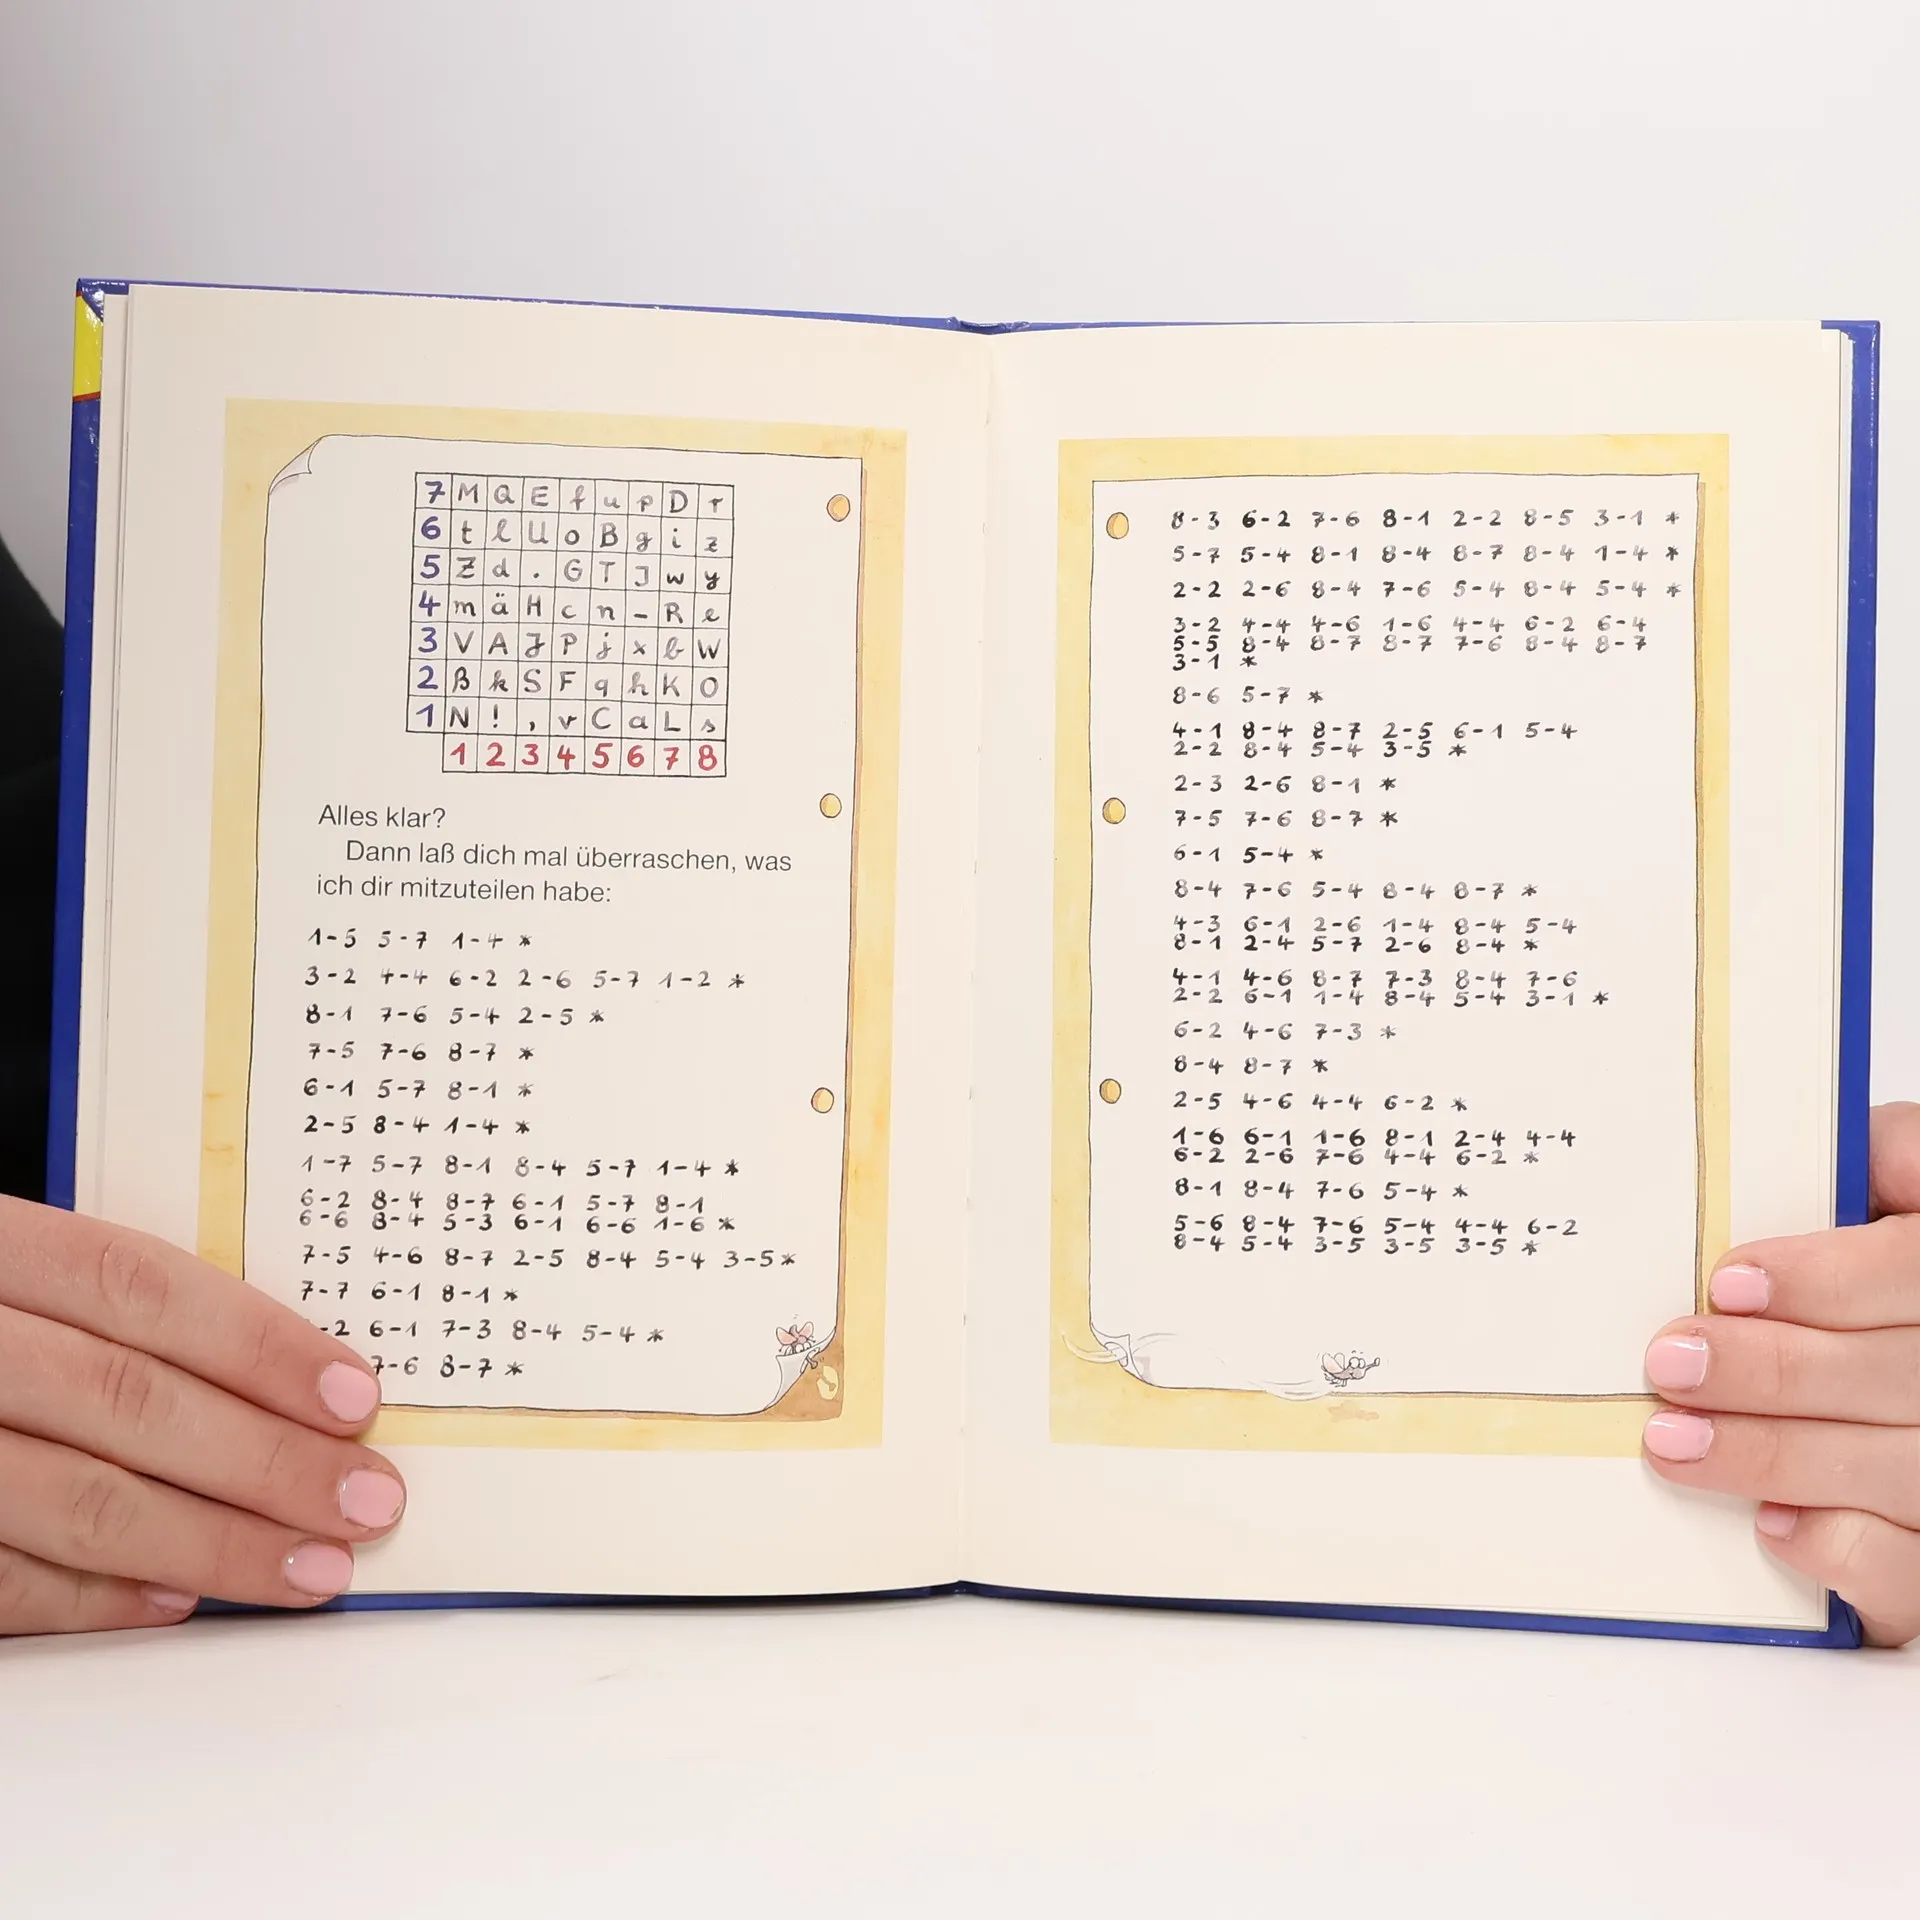 7 M Q E f u p D r
6 t l U o B g i z
5 Z d . G T J w y
4 m ä H c n - R e
3 V A J P j x b W
2 ß k S F q h K O
1 N ! , v C a L s
1 2 3 4 5 6 7 8
Alles klar?
Dann laß dich mal überraschen, was
ich dir mitzuteilen habe:
1-5 5-7 1-4 *
3-2 4-4 6-2 2-6 5-7 1-2 *
8-1 7-6 5-4 2-5 *
7-5 7-6 8-7 *
6-1 5-7 8-1 *
2-5 8-4 1-4 *
1-7 5-7 8-1 8-4 5-7 1-4 *
6-2 8-4 8-7 6-1 5-7 8-1
6-6 8-4 5-3 6-1 6-6 1-6 *
7-5 4-6 8-7 2-5 8-4 5-4 3-5 *
7-7 6-1 8-1 *
-2 6-1 7-3 8-4 5-4 *
7-6 8-7 *
8-3 6-2 7-6 8-1 2-2 8-5 3-1 *
5-7 5-4 8-1 8-4 8-7 8-4 1-4 *
2-2 2-6 8-4 7-6 5-4 8-4 5-4 *
3-2 4-4 4-6 1-6 4-4 6-2 6-4
5-5 8-4 8-7 8-7 7-6 8-4 8-7
3-1 *
8-6 5-7 *
4-1 8-4 8-7 2-5 6-1 5-4
2-2 8-4 5-4 3-5 *
2-3 2-6 8-1 *
7-5 7-6 8-7 *
6-1 5-4 *
8-4 7-6 5-4 8-4 8-7 *
4-3 6-1 2-6 1-4 8-4 5-4
8-1 2-4 5-7 2-6 8-4 *
4-1 4-6 8-7 7-3 8-4 7-6
2-2 6-1 1-4 8-4 5-4 3-1 *
6-2 4-6 7-3 *
8-4 8-7 *
2-5 4-6 4-4 6-2 *
1-6 6-1 1-6 8-1 2-4 4-4
6-2 2-6 7-6 4-4 6-2 *
8-1 8-4 7-6 5-4 *
5-6 8-4 7-6 5-4 4-4 6-2
8-4 5-4 3-5 3-5 3-5 *